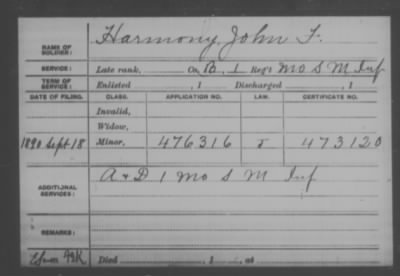 NAME OF SOLDIER: Harmony, John F.
SERVICE: Late rank, Co. B, 1 Reg't Mo S M Inf
TERM OF SERVICE: Enlisted , 1 Discharged , 1
DATE OF FILING. CLASS. APPLICATION NO. LAW. CERTIFICATE NO.
Invalid,
Widow,
1890 Sept 18 Minor, 476316 J 473120
ADDITIONAL SERVICES: A + D 1 Mo S M Inf
REMARKS:
Died , 1 , at